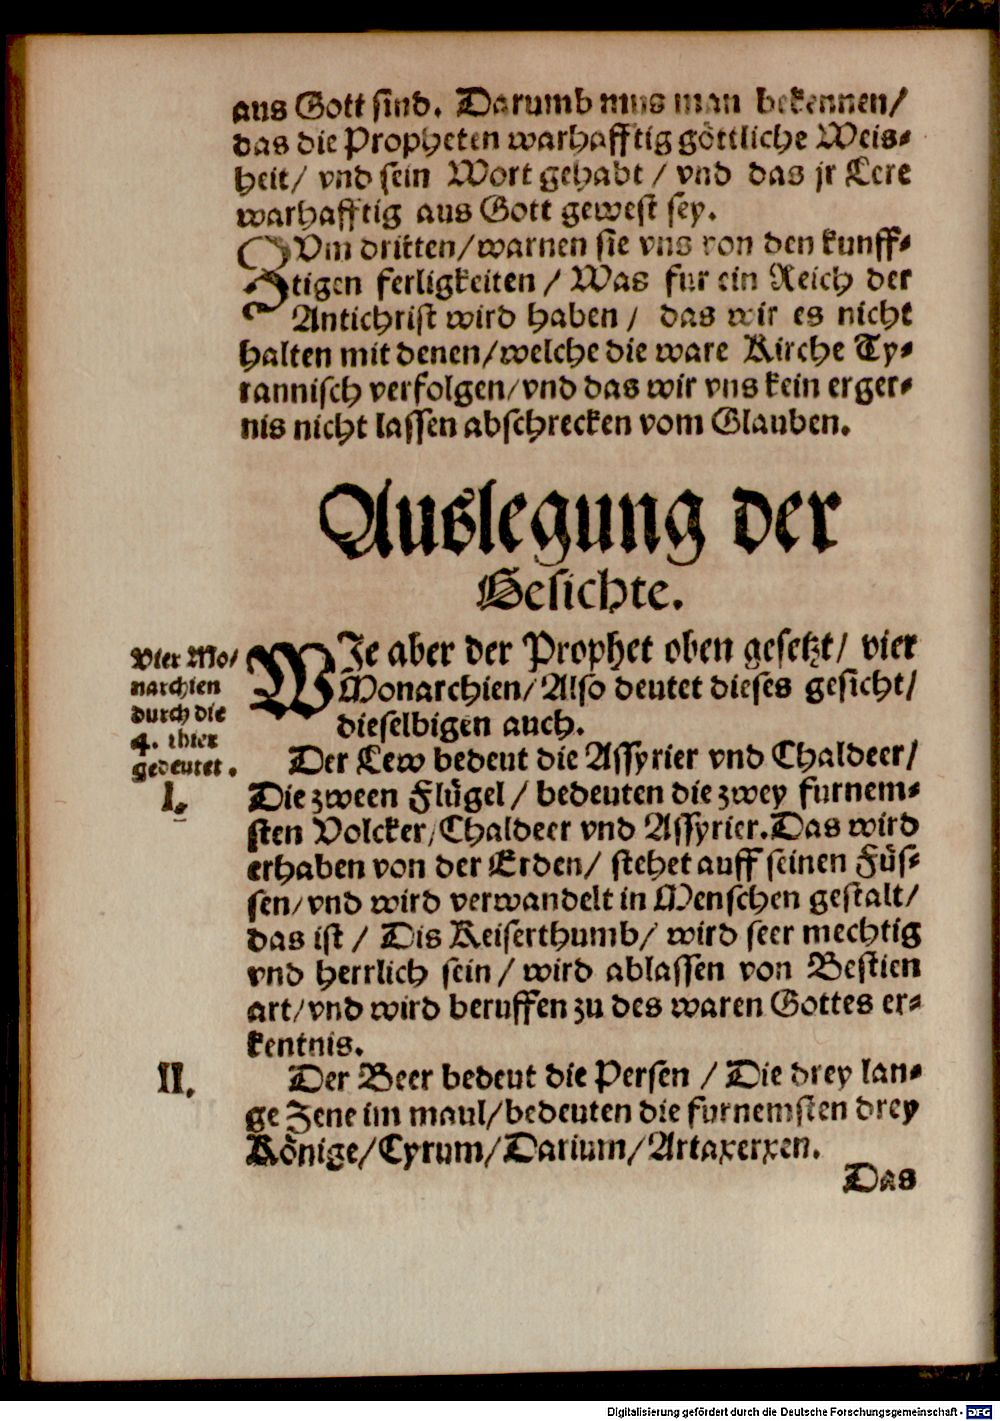 aus Gott sind. Darumb mus man bekennen/
das die Propheten warhafftig göttliche Weis-
heit/ vnd sein Wort gehabt / vnd das jr Lere
warhafftig aus Gott gewest sey.
ZVm dritten/warnen sie vns von den kunff-
tigen ferligkeiten / Was fur ein Reich der
Antichrist wird haben / das wir es nicht
halten mit denen/welche die ware Kirche Ty-
rannisch verfolgen/vnd das wir vns kein erger-
nis nicht lassen abschrecken vom Glauben.
Auslegung der
Gesichte.
Vier Mo/
narchien
durch die
4. thier
gedeutet.
WIe aber der Prophet oben gesetzt/ vier
Monarchien/Also deutet dieses gesicht/
dieselbigen auch.
Der Lew bedeut die Assyrier vnd Chaldeer/
I.
Die zween Flügel / bedeuten die zwey furnem-
sten Volcker/Chaldeer vnd Assyrier.Das wird
erhaben von der Erden/ stehet auff seinen Füs-
sen/vnd wird verwandelt in Menschen gestalt/
das ist / Dis Keiserthumb/ wird seer mechtig
vnd herrlich sein / wird ablassen von Bestien
art/vnd wird beruffen zu des waren Gottes er-
kentnis.
II.
Der Beer bedeut die Persen / Die drey lan-
ge Zene im maul/bedeuten die furnemsten drey
Könige/Cyrum/Darium/Artaxerxen.
Das
Digitalisierung gefördert durch die Deutsche Forschungsgemeinschaft - DFG